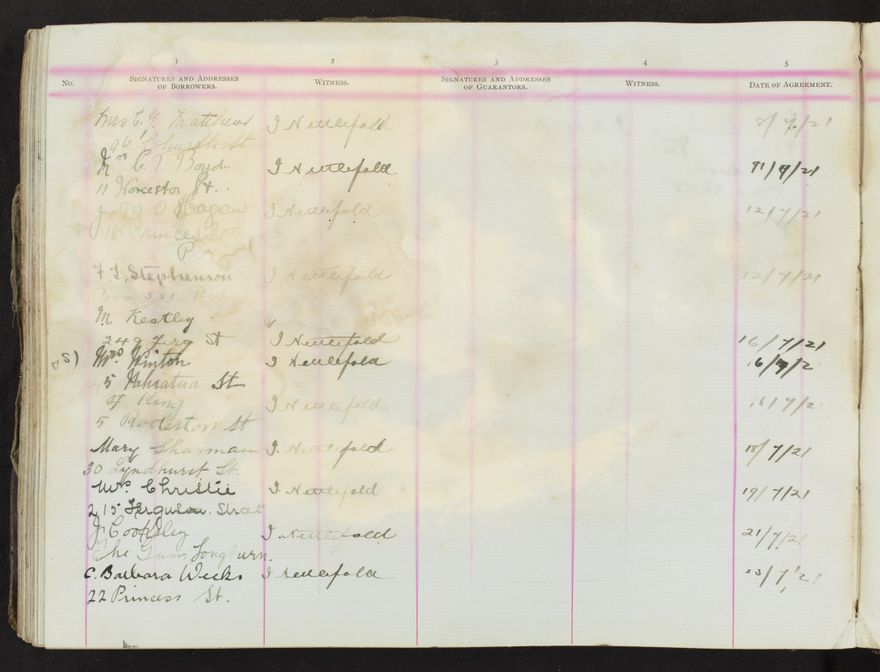 1 2 3 4 5
No. SIGNATURES AND ADDRESSES OF BORROWERS. WITNESS. SIGNATURES AND ADDRESSES OF GUARANTORS. WITNESS. DATE OF AGREEMENT.
Mrs C. Y. Matthews I Nettlefold 7/21
96 Church St
Mrs C. T. Boyd. I Nettlefold 11/7/21
11 Worcester St.
J M O'Hagan I Nettlefold 12/7/21
16 Princess
F. L. Stephenson I Nettlefold 12/7/21
Box 381
M Keatley
249 St I Nettlefold 16/7/21
Mrs. Winton I Nettlefold 16/7/2
15 Pahiatua St
F King I Nettlefold 16/7/2
5 St
Mary Sharman I. Nettlefold 18/7/21
30 Lyndhurst St.
Mrs. Christie I. Nettlefold 19/7/21
215 Ferguson Street
J. Cooksley I. Nettlefold 21/7/21
The Gums Longburn.
C. Barbara Weeks I Nettlefold 23/7/21
22 Princess St.